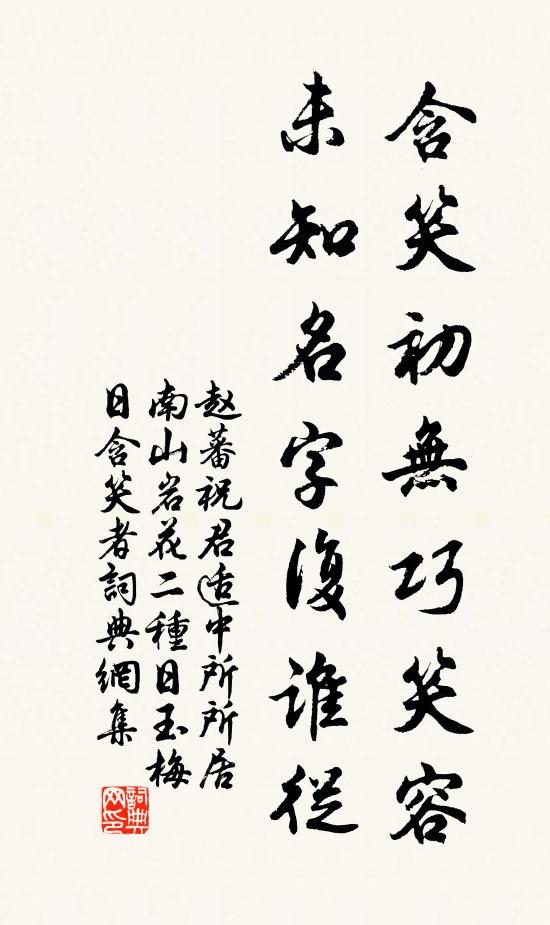 含笑初無巧笑容
未知名字復誰從
趙蕃祝君适中所所居
南山岩花二種日玉梅
日含笑者詞典網集
詞典
网印